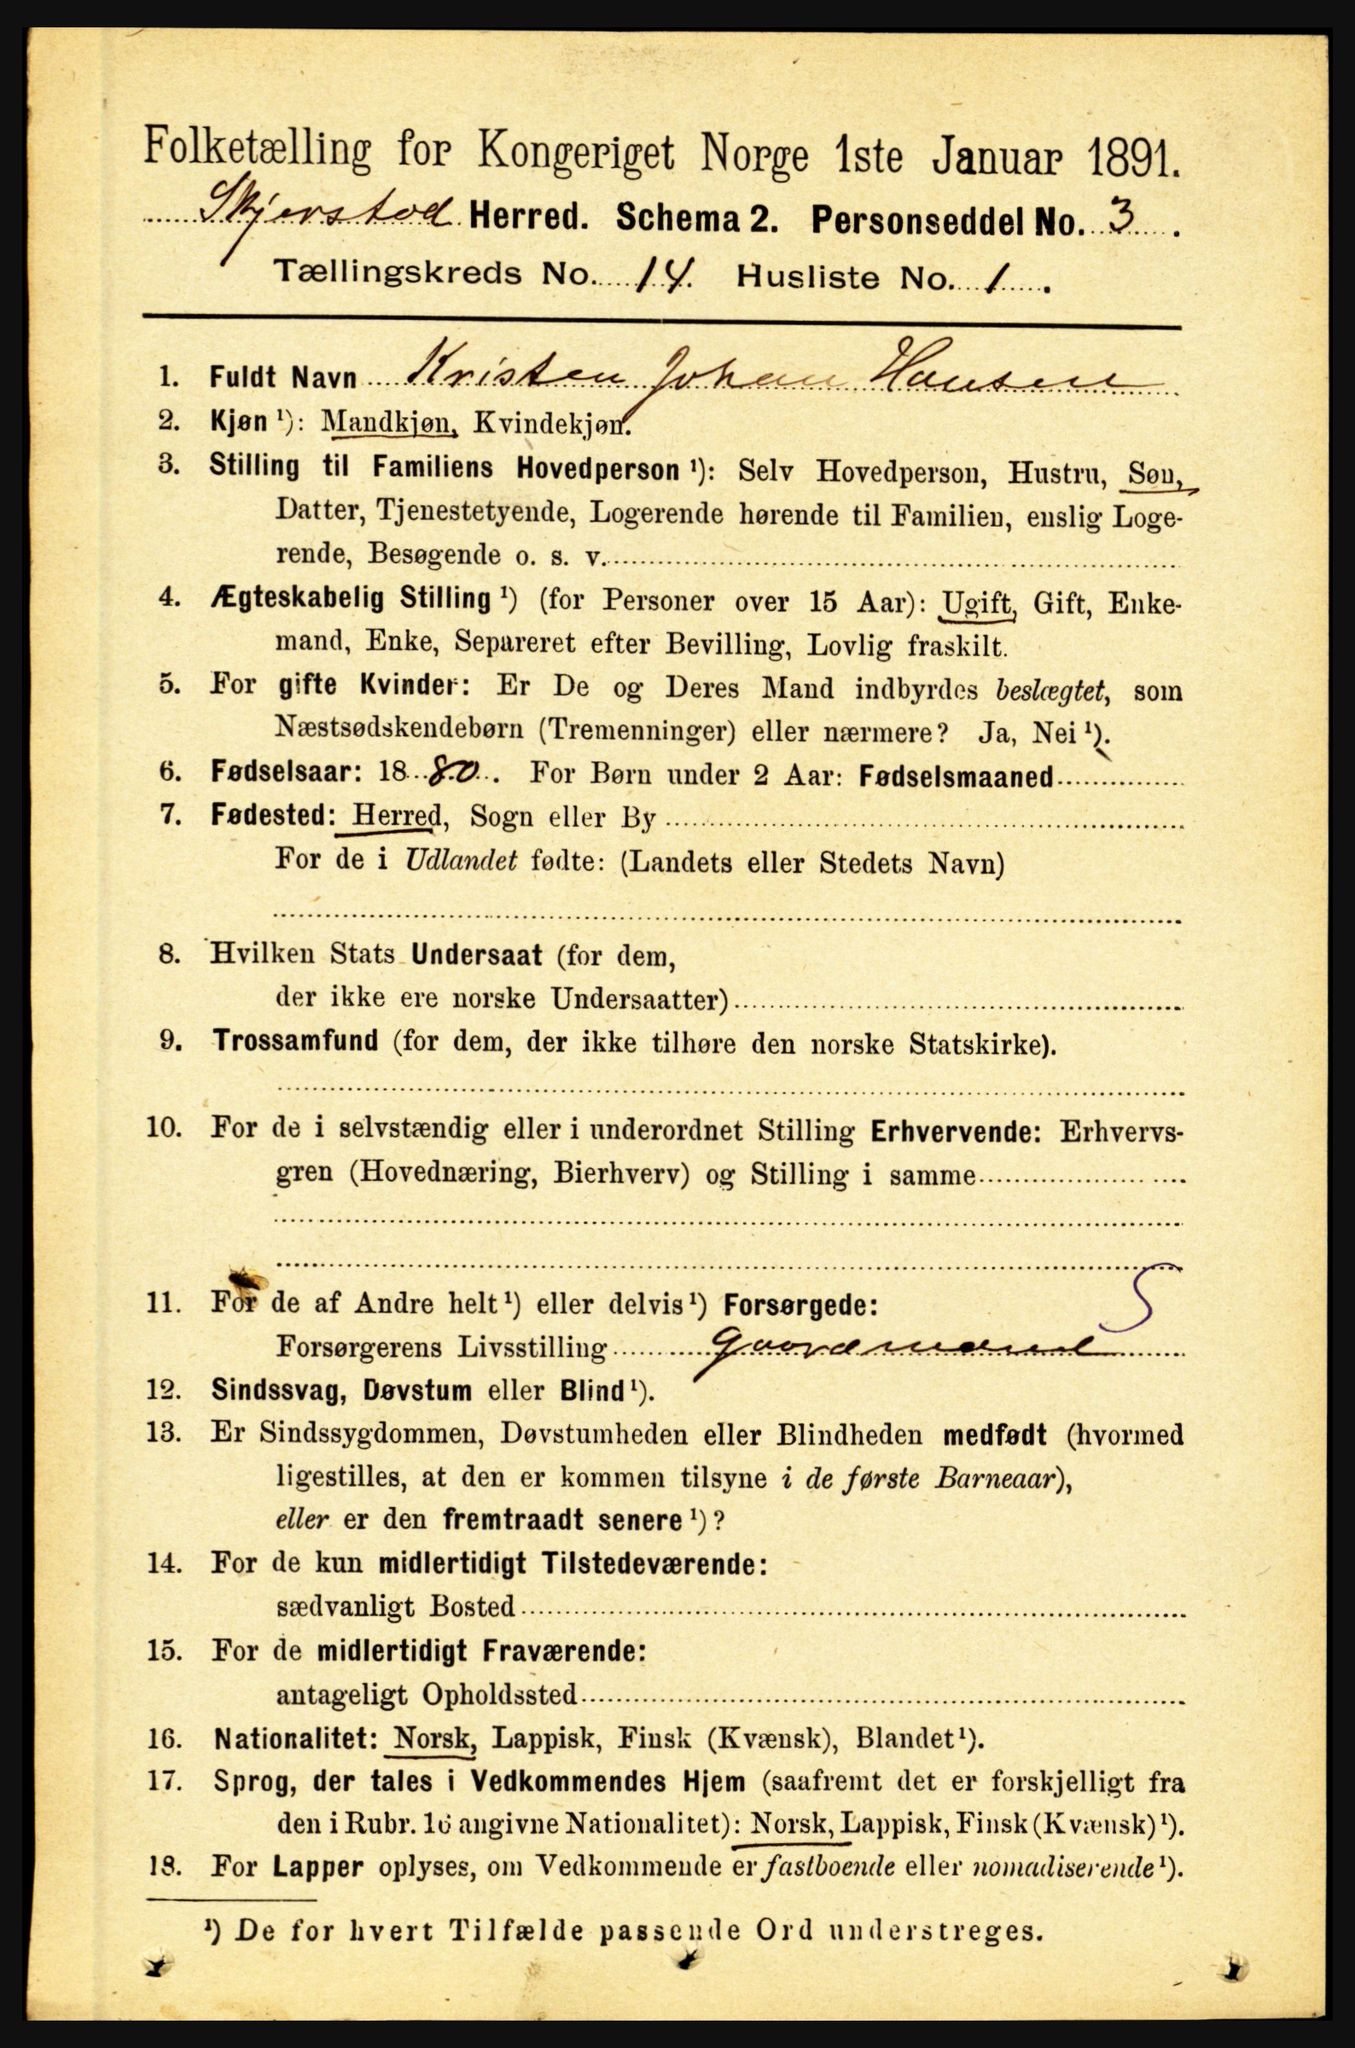 Folketælling for Kongeriget Norge 1ste Januar 1891.
Skjerstad Herred. Schema 2. Personseddel No. 3.
Tællingskreds No. 14. Husliste No. 1.
1. Fuldt Navn Kristen Johan Hansen
2. Kjøn ¹): Mandkjøn, Kvindekjøn.
3. Stilling til Familiens Hovedperson ¹): Selv Hovedperson, Hustru, Søn,
Datter, Tjenestetyende, Logerende hørende til Familien, enslig Loge-
rende, Besøgende o. s. v.
4. Ægteskabelig Stilling ¹) (for Personer over 15 Aar): Ugift, Gift, Enke-
mand, Enke, Separeret efter Bevilling, Lovlig fraskilt.
5. For gifte Kvinder: Er De og Deres Mand indbyrdes beslægtet, som
Næstsødskendebørn (Tremenninger) eller nærmere? Ja, Nei ¹).
6. Fødselsaar: 1880. For Børn under 2 Aar: Fødselsmaaned
7. Fødested: Herred, Sogn eller By
For de i Udlandet fødte: (Landets eller Stedets Navn)
8. Hvilken Stats Undersaat (for dem,
der ikke ere norske Undersaatter)
9. Trossamfund (for dem, der ikke tilhøre den norske Statskirke).
10. For de i selvstændig eller i underordnet Stilling Erhvervende: Erhvervs-
gren (Hovednæring, Bierhverv) og Stilling i samme
11. For de af Andre helt ¹) eller delvis ¹) Forsørgede: S
Forsørgerens Livsstilling Gaardmand
12. Sindssvag, Døvstum eller Blind ¹).
13. Er Sindssygdommen, Døvstumheden eller Blindheden medfødt (hvormed
ligestilles, at den er kommen tilsyne i de første Barneaar),
eller er den fremtraadt senere ¹)?
14. For de kun midlertidigt Tilstedeværende:
sædvanligt Bosted
15. For de midlertidigt Fraværende:
antageligt Opholdssted
16. Nationalitet: Norsk, Lappisk, Finsk (Kvænsk), Blandet ¹).
17. Sprog, der tales i Vedkommendes Hjem (saafremt det er forskjelligt fra
den i Rubr. 16 angivne Nationalitet): Norsk, Lappisk, Finsk (Kvænsk) ¹).
18. For Lapper oplyses, om Vedkommende er fastboende eller nomadiserende ¹).
¹) De for hvert Tilfælde passende Ord understreges.